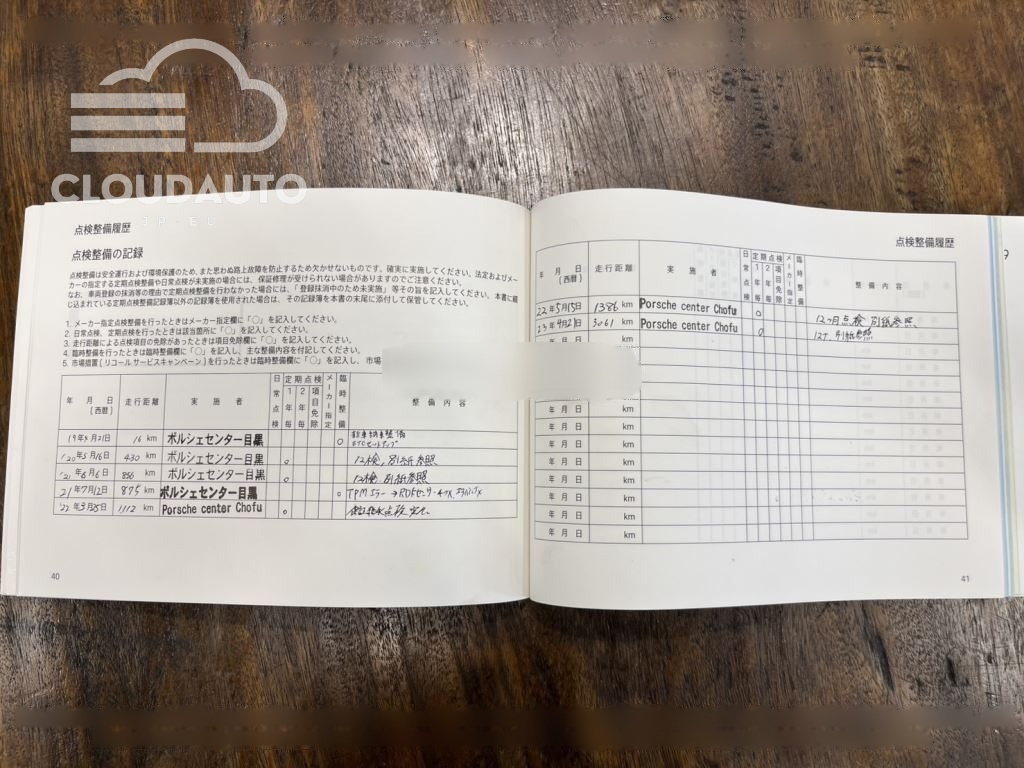 CLOUDAUTO
点検整備履歴
点検整備の記録
点検整備は安全運行および環境保護のため、また思わぬ路上故障を防止するため欠かせないものです。確実に実施してください。法定およびメー
カーの指定する定期点検整備や日常点検が未実施の場合には、保証修理が受けられない場合がありますのでご注意ください。
なお、車両登録の抹消等の理由で定期点検整備を行わなかった場合には、「登録抹消中のため未実施」等その旨を記載してください。本書に綴
じ込まれている定期点検整備記録簿以外の記録簿を使用された場合は、その記録簿を本書の末尾に添付して保管してください。
1. メーカー指定点検整備を行ったときはメーカー指定欄に「○」を記入してください。
2. 日常点検、定期点検を行ったときは該当箇所に「○」を記入してください。
3. 走行距離による点検項目の免除があったときは項目免除欄に「○」を記入してください。
4. 臨時整備を行ったときは臨時整備欄に「○」を記入し、主な整備内容を付記してください。
5. 市場措置(リコール サービスキャンペーン)を行ったときは臨時整備欄に「○」を記入し、市場
年 月 日 (西暦) 走行距離 実施者 日常点検 定期点検 1年毎 2年毎 項目免除 メーカー指定 臨時整備 整備内容
19年5月21日 16 km ポルシェセンター目黒 ○
'20年5月16日 430 km ポルシェセンター目黒 ○ 12検、別紙参照
'21年6月6日 856 km ポルシェセンター目黒 ○ 12検、別紙参照
21年7月12日 875 km ポルシェセンター目黒 ○ TPMエラー
'22年3月25日 1112 km Porsche center Chofu ○
40
点検整備履歴
年 月 日 (西暦) 走行距離 実施者 日常点検 定期点検 1年毎 2年毎 項目免除 メーカー指定 臨時整備 整備内容
22年5月15日 1386 km Porsche center Chofu ○ 12ヶ月点検 別紙参照
23年4月2日 3061 km Porsche center Chofu ○ 別紙参照
年 月 日
年 月 日
年 月 日 km
年 月 日 km
年 月 日 km
年 月 日 km
年 月 日 km
年 月 日 km
年 月 日 km
年 月 日 km
41